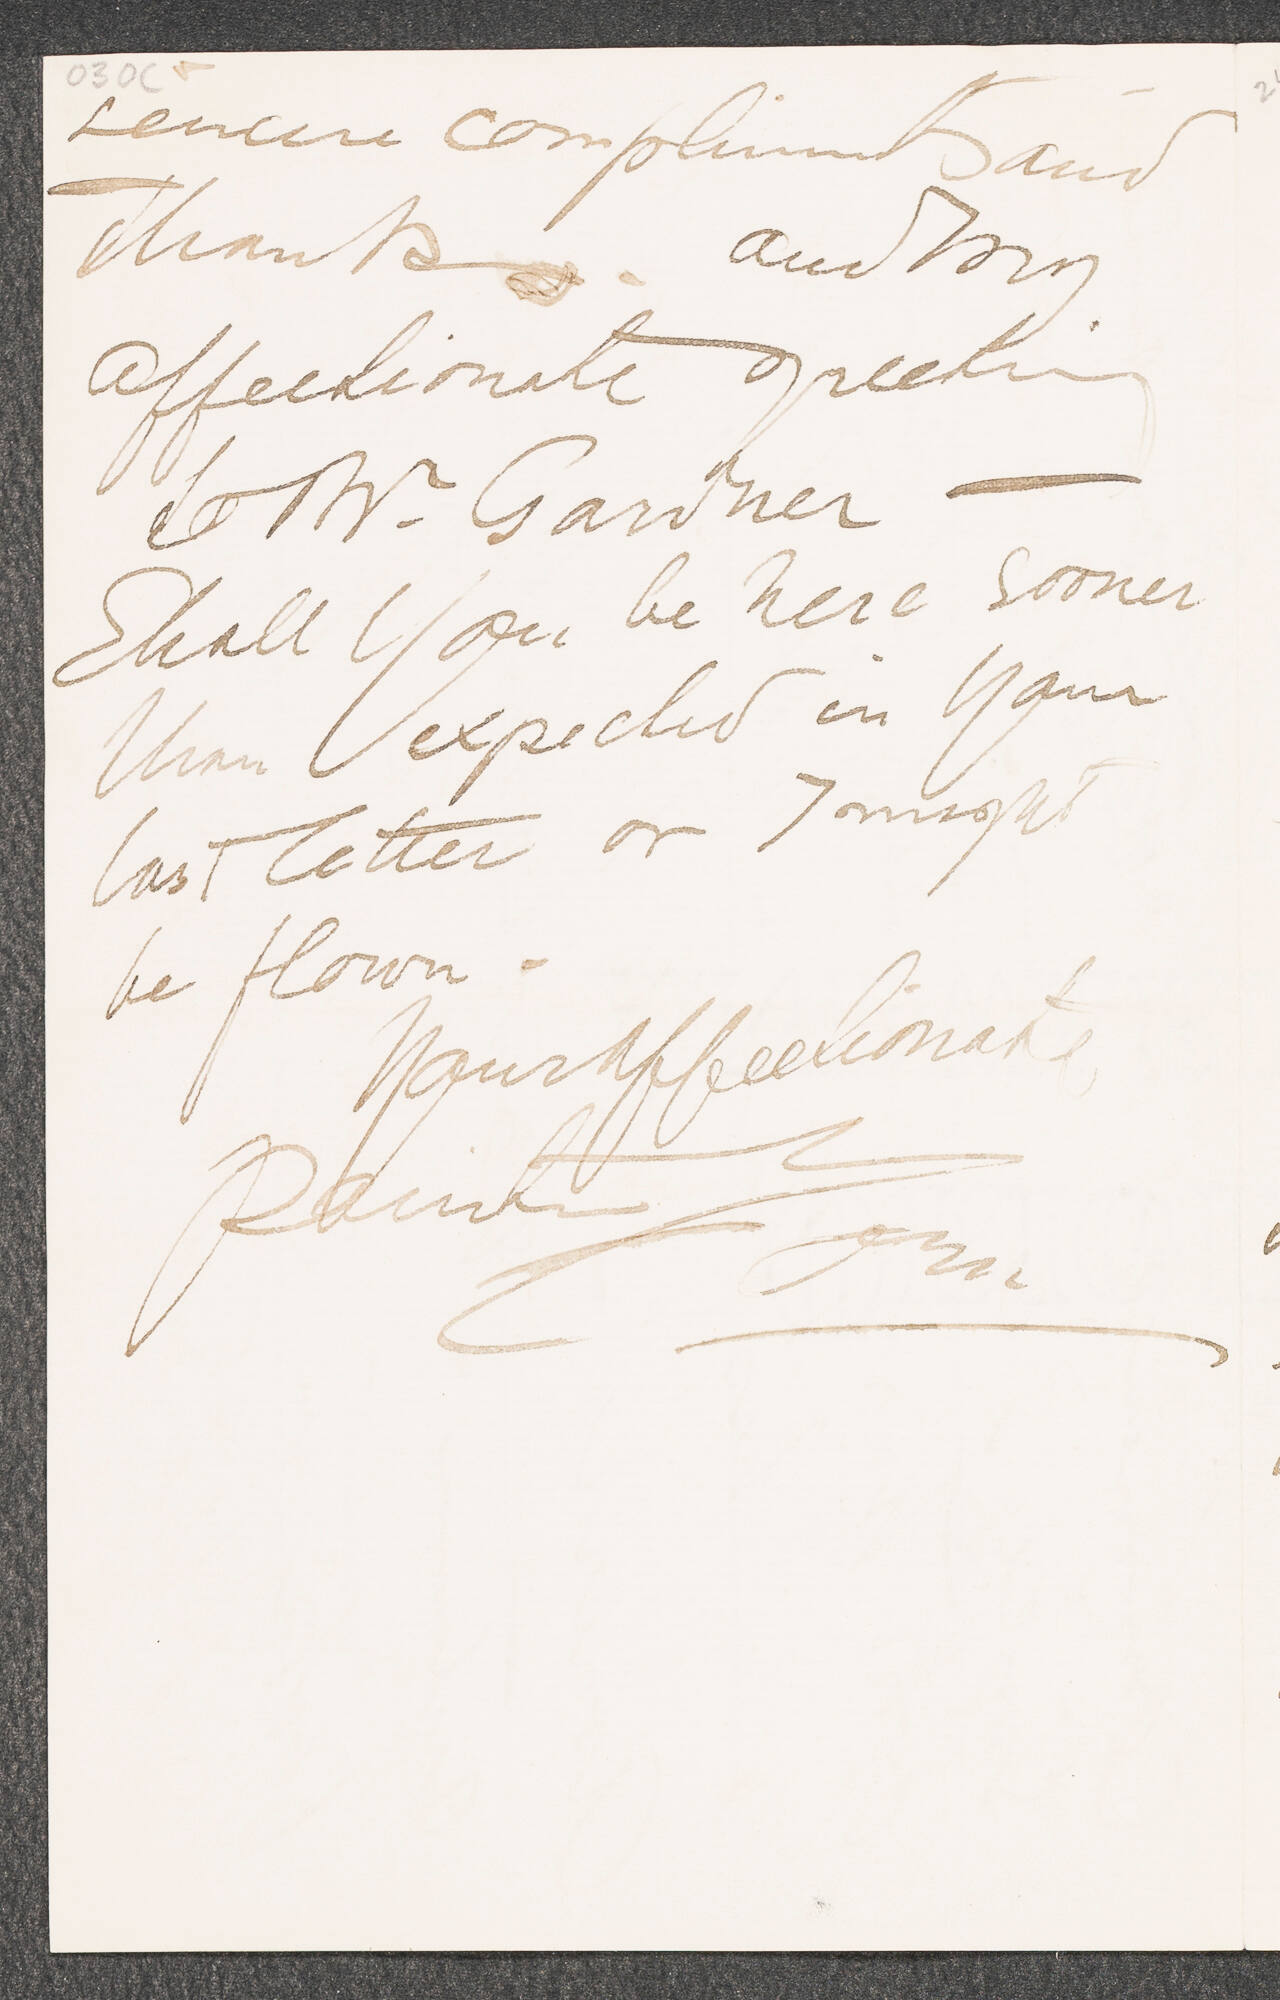 030C
compliments and
Thanks. and my
affectionate greeting
to Mr. Gardner —
Shall you be here sooner
than expected in your
last letter or I might
be flown -
Your affectionate